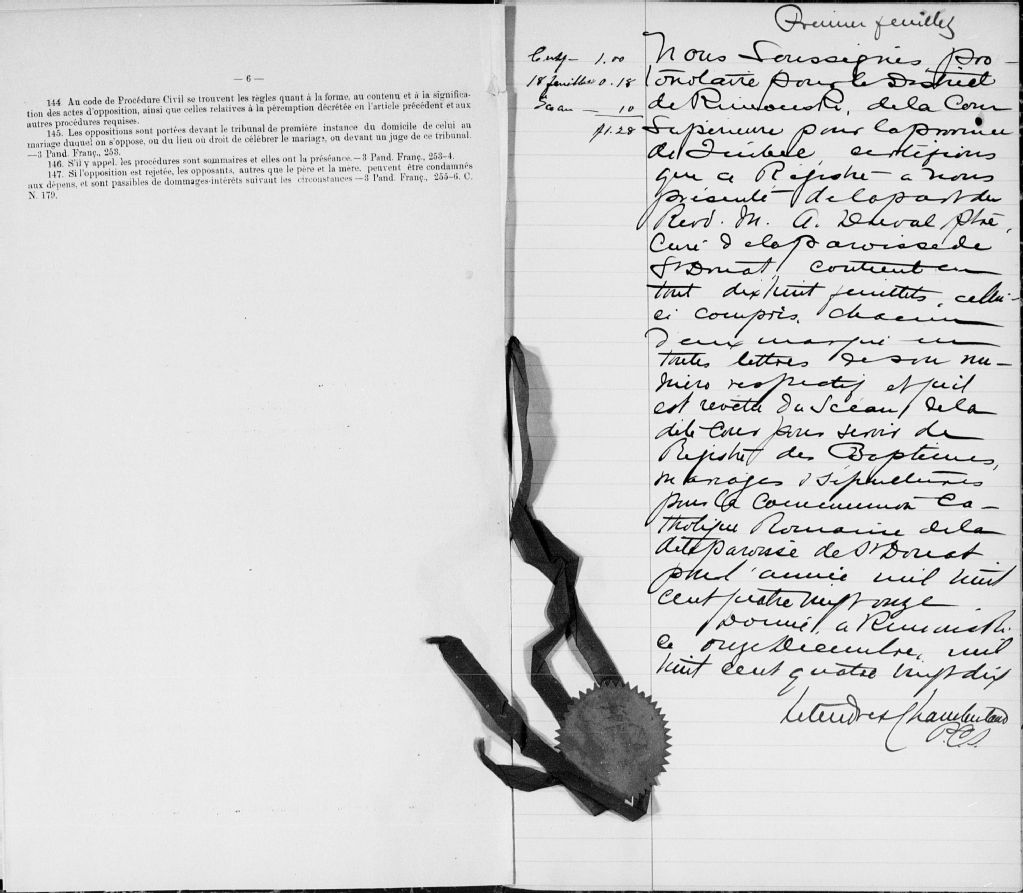 — 6 —
144. Au code de Procédure Civil se trouvent les règles quant à la forme, au contenu et à la significa-
tion des actes d'opposition, ainsi que celles relatives à la péremption décrétée en l'article précédent et aux
autres procédures requises.
145. Les oppositions sont portées devant le tribunal de première instance du domicile de celui au
mariage duquel on s'oppose, ou du lieu où droit de célébrer le mariage, ou devant un juge de ce tribunal.
—3 Pand. Franç., 253.
146. S'il y appel, les procédures sont sommaires et elles ont la préséance.—3 Pand. Franç., 253-4.
147. Si l'opposition est rejetée, les opposants, autres que le père et la mère, peuvent être condamnés
aux dépens, et sont passibles de dommages-intérêts suivant les circonstances—3 Pand. Franç., 255-6. C.
N. 179.
Premier feuillet
1.00
18 feuillets 0.18
Sceau 10
$1.28
Nous Soussignés, pro-
tonotaire pour le District
de Rimouski, de la Cour
Supérieure pour la province
de Québec, certifions
que ce Régistre a nous
présenté de la part du
Revd. M. A. Duval Ptre,
Curé de la paroisse de
St Donat, contient en
tout dix huit feuillets, celui-
ci compris, chacun
d'eux marqué en
toutes lettres de son nu-
méro respectif et qu'il
est revêtu du Scéau de la
dite Cour pour servir de
Régistre des Baptêmes,
mariages & Sépultures
pour la Communion Ca-
tholique Romaine de la
dite paroisse de St Donat
pour l'année mil huit
cent quatre vingt onze
Donné à Rimouski
ce onze Décembre, mil
huit cent quatre vingt dix
Letendre & Chamberland
P.C.S.